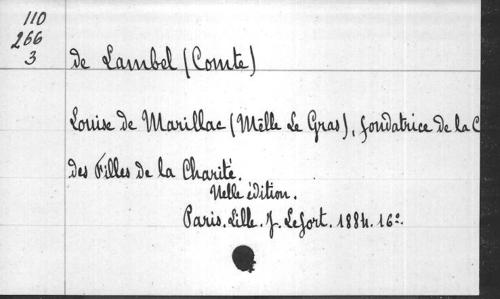 110
266
3
de Lambel (Comte)
Louise de Marillac (Melle Le Gras), fondatrice de la C
des Filles de la Charité.
Nelle édition.
Paris. Lille. J. Lefort. 1884. 16°.